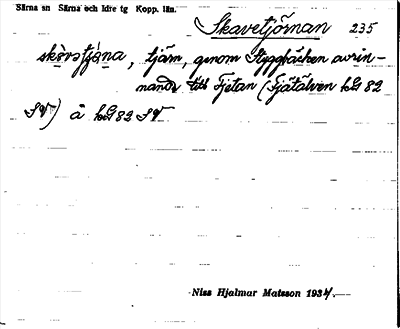 Särna sn Särna och Idre tg Kopp. län.
Skavetjörnan 235
skàvatjø̀na, tjärn, genom Styggbäcken avrin-
nande till Fjetan (Fjätälven bG 82
SV) å bG 82 SV
Niss Hjalmar Matsson 1934.